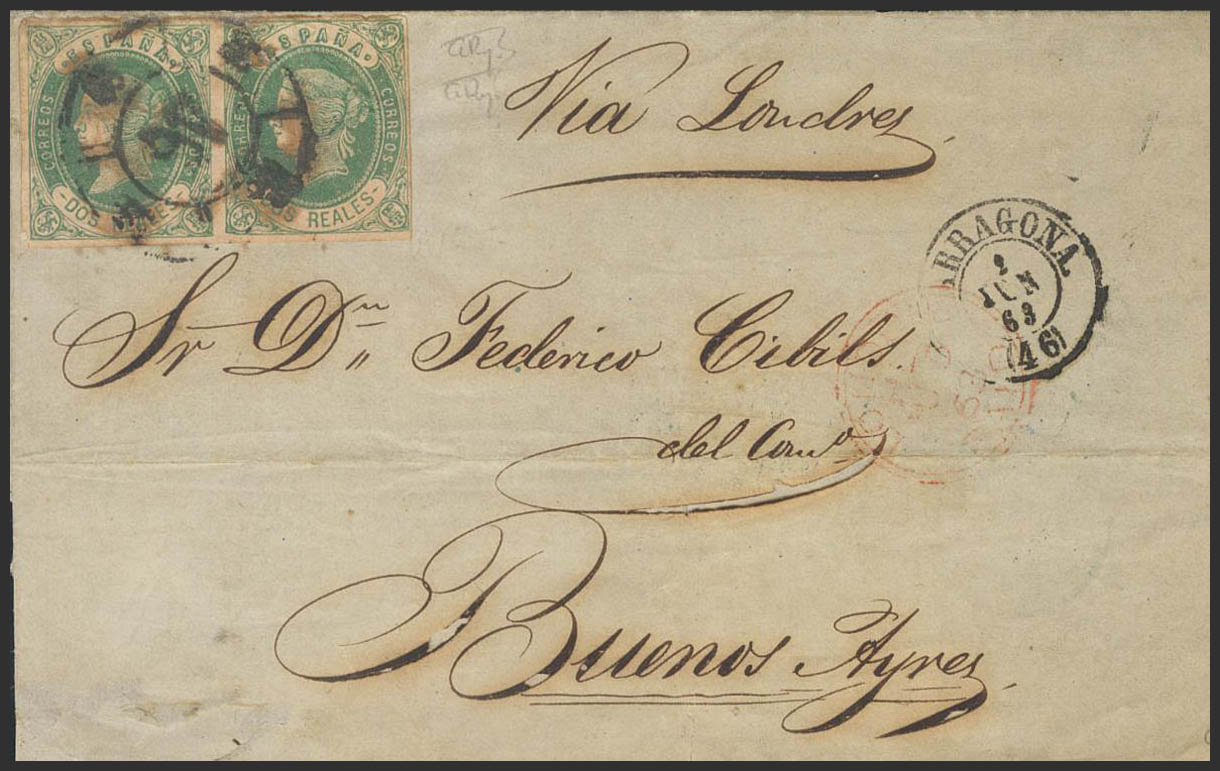 ESPAÑA ESPAÑA
CORREOS CORREOS CORREOS
DOS REALES
Via Londres
ARRAGONA.
2
JUN
63
(46)
Sr Dn Federico Cibils.
del Como
Buenos Ayres